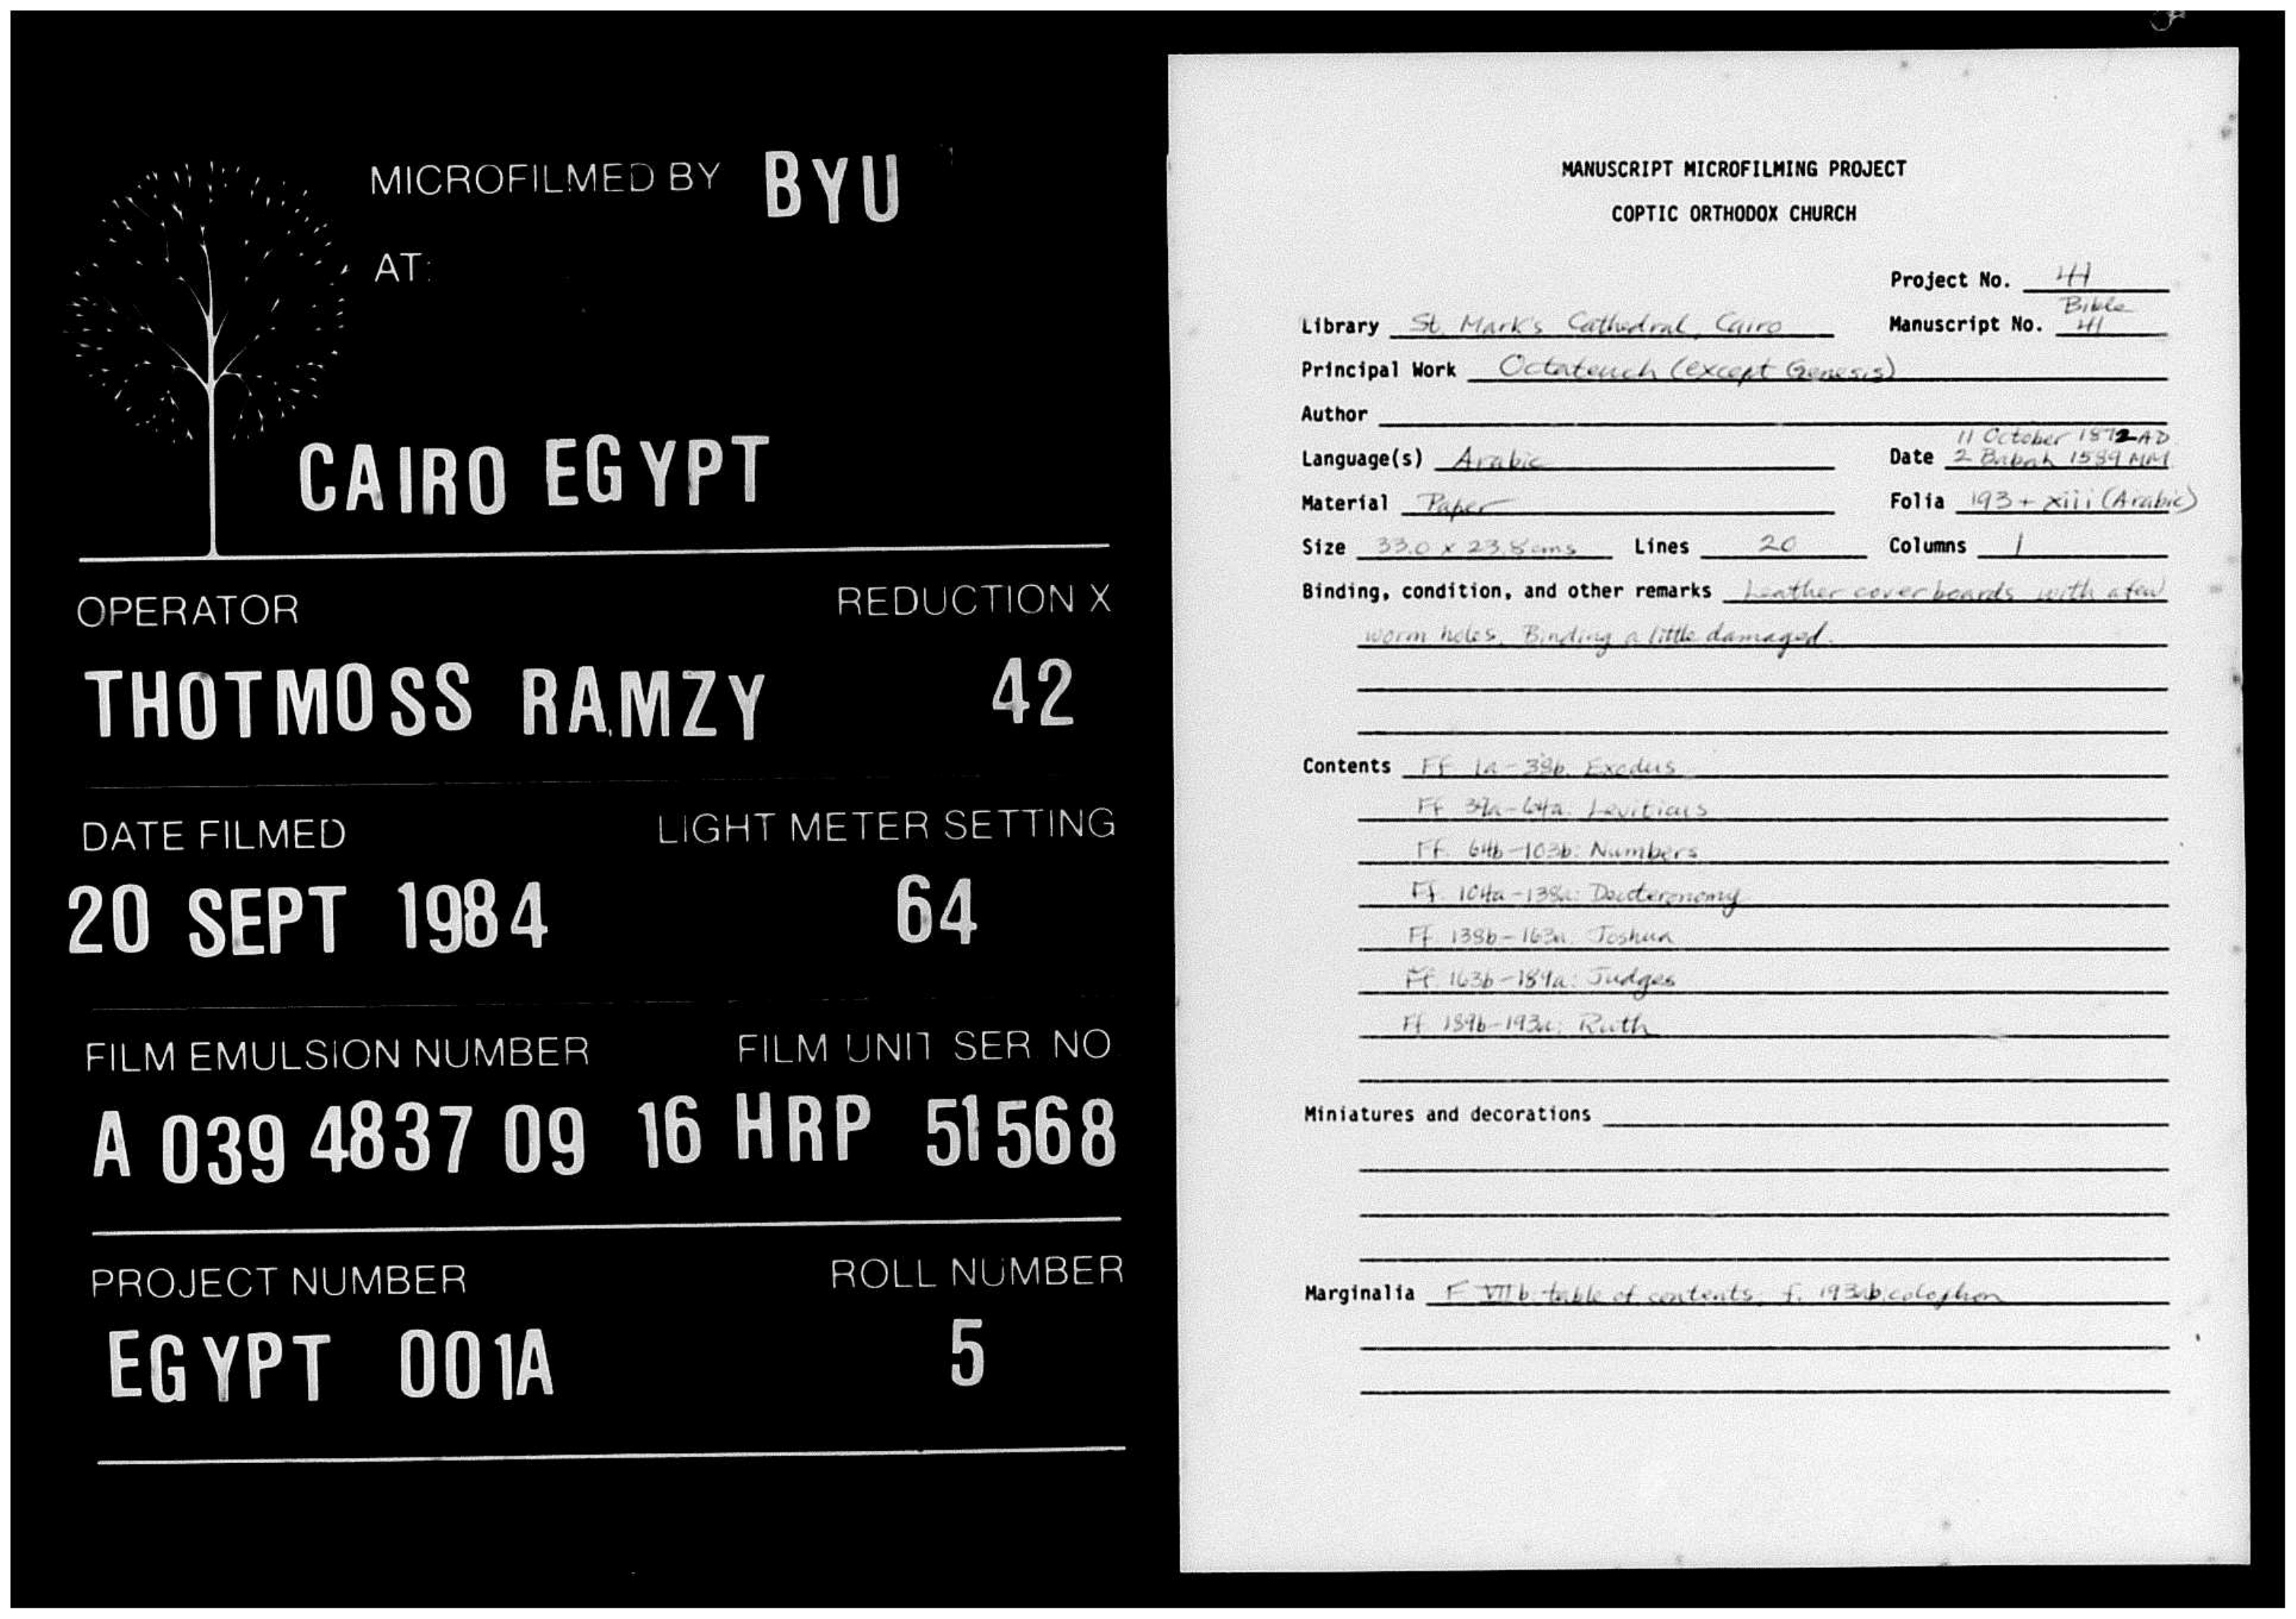 MICROFILMED BY BYU
AT:
CAIRO EGYPT
OPERATOR REDUCTION X
THOTMOSS RAMZY 42
DATE FILMED LIGHT METER SETTING
20 SEPT 1984 64
FILM EMULSION NUMBER FILM UNIT SER NO
A 039 4837 09 16 HRP 51568
PROJECT NUMBER ROLL NUMBER
EGYPT 001A 5
MANUSCRIPT MICROFILMING PROJECT
COPTIC ORTHODOX CHURCH
Project No. 41
Bible
Library St. Mark's Cathedral, Cairo Manuscript No. 41
Principal Work Octateuch (except Genesis)
Author
11 October 1872 AD
Language(s) Arabic Date 2 Babah 1589 MM
Material Paper Folia 193 + xiii (Arabic)
Size 33.0 x 23.8 cms Lines 20 Columns 1
Binding, condition, and other remarks Leather cover boards with a few
worm holes. Binding a little damaged.
Contents Ff. 1a-38b: Exodus
Ff. 39a-64a: Leviticus
Ff. 64b-103b: Numbers
Ff. 104a-138a: Deuteronomy
Ff. 138b-163a: Joshua
Ff. 163b-189a: Judges
Ff. 189b-193a: Ruth
Miniatures and decorations
Marginalia F. VII b: table of contents; f. 193ab: colophon